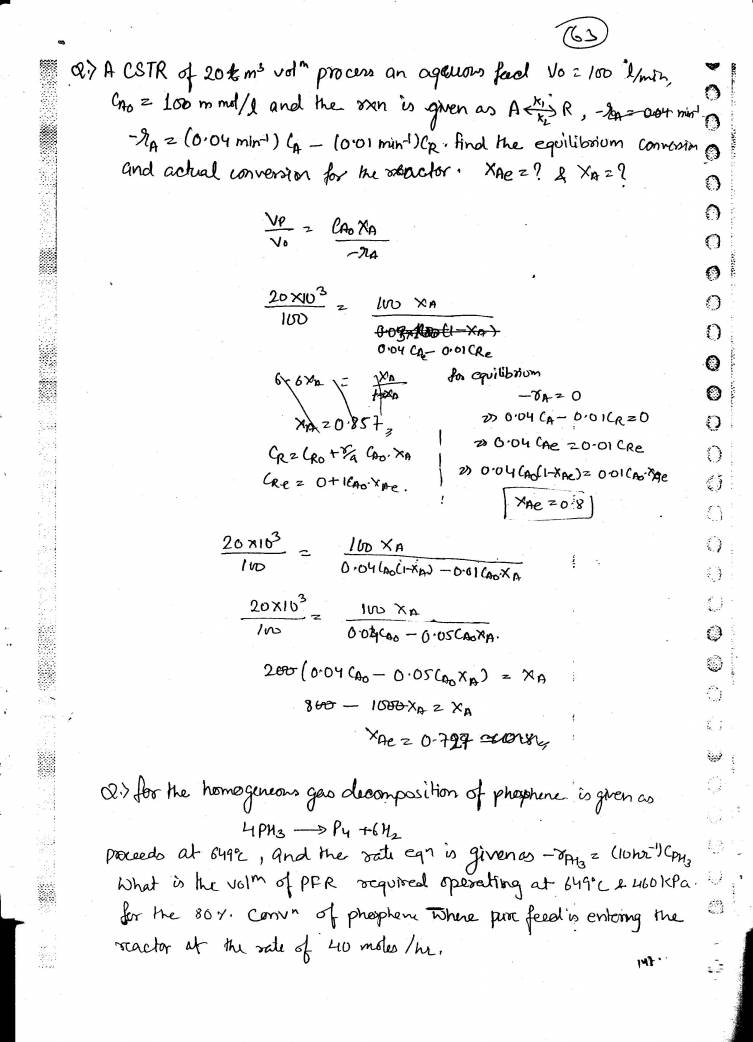 63
Q.> A CSTR of 20 m³ volᵐ process an aqeuous feed V₀ = 100 l/min,
C_A₀ = 100 m mol/l and the rxn is given as A ⇌ R, -r_A = 0.04 min⁻¹
K₁
K₂
-r_A = (0.04 min⁻¹) C_A – (0.01 min⁻¹)C_R. find the equilibrium conversion
and actual conversion for the reactor. X_Ae = ? & X_A = ?
Vp/V₀ = C_A₀ X_A / -r_A
20×10³/100 = 100 X_A / 0.04 C_A – 0.01 C_Re
6 – 6X_A = X_A / 1-X_A
X_A = 0.857,
C_R = C_R₀ + r/a C_A₀. X_A
C_Re = 0 + 1 C_A₀. X_Ae.
for equilibrium
-r_A = 0
⇒ 0.04 C_A – 0.01 C_R = 0
⇒ 0.04 C_Ae = 0.01 C_Re
⇒ 0.04 C_A₀(1-X_Ae) = 0.01 C_A₀.X_Ae
X_Ae = 0.8
20×10³/100 = 100 X_A / 0.04 C_A₀(1-X_A) – 0.01 C_A₀.X_A
20×10³/100 = 100 X_A / 0.04 C_A₀ – 0.05 C_A₀X_A.
200 (0.04 C_A₀ – 0.05 C_A₀ X_A) = X_A
800 – 1000 X_A = X_A
X_Ae = 0.797
Q.> for the homogeneous gas decomposition of phosphene is given as
4PH₃ ⟶ P₄ + 6H₂
proceeds at 649°c, and the rate eqⁿ is given as -r_PH₃ = (10 hr⁻¹) C_PH₃
What is the volᵐ of PFR required operating at 649°C & 460 kPa.
for the 80%. convⁿ of phosphene where pure feed is entering the
reactor at the rate of 40 moles/hr.
147..